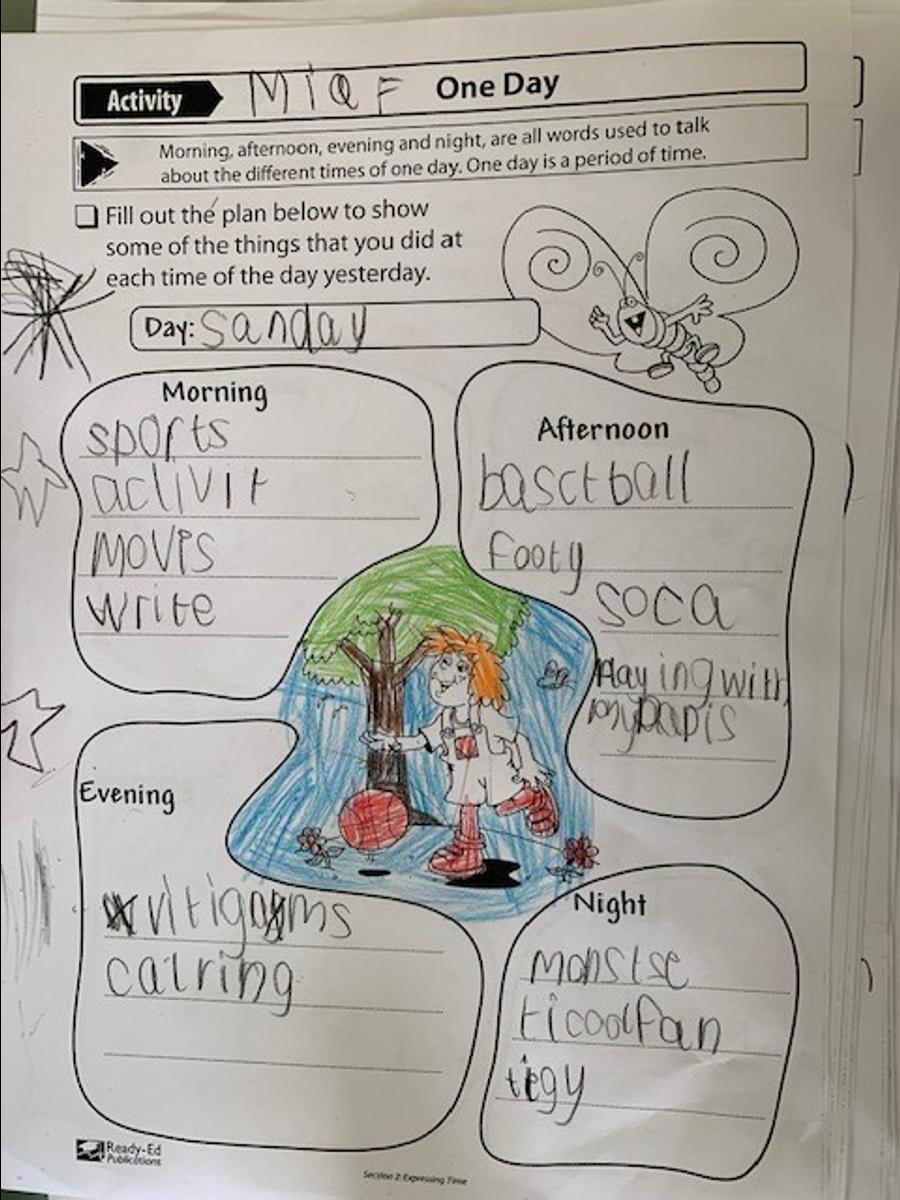 Activity Mia F One Day
Morning, afternoon, evening and night, are all words used to talk
about the different times of one day. One day is a period of time.
Fill out the plan below to show
some of the things that you did at
each time of the day yesterday.
Day: sanday
Morning
sports
activit
movis
write
Afternoon
basctball
footy
soca
Playing with
my papis
Evening
catring
Night
monstse
ticoolfan
tigy
Ready-Ed
Publications
Section 2: Expressing Time